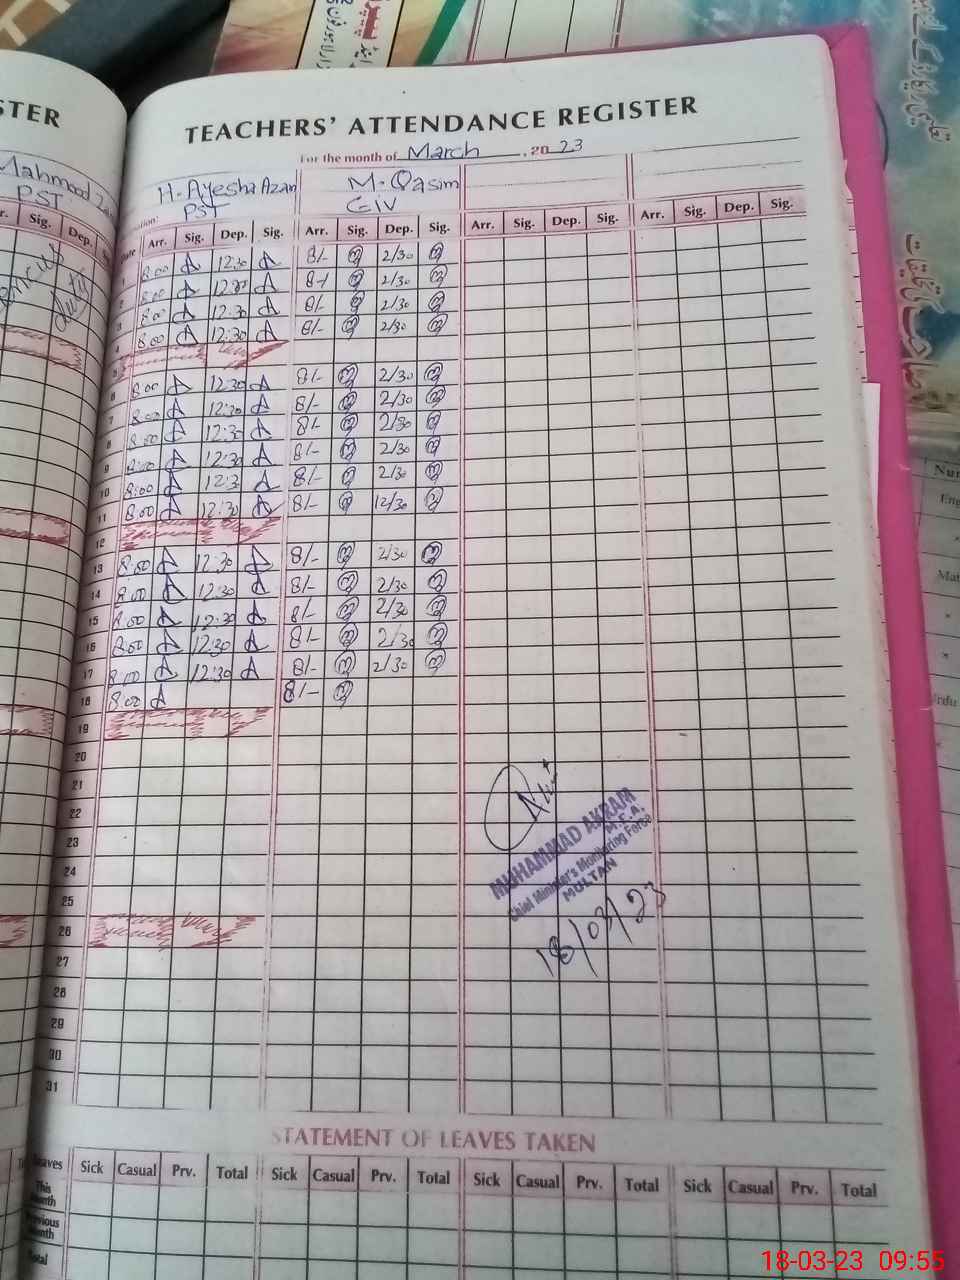 STER
TEACHERS' ATTENDANCE REGISTER
For the month of March , 20 23
Mahmood
PST
H. Ayesha Azam
PST
M. Qasim
CIV
Sig. Dep.
Date Arr. Sig. Dep. Sig. Arr. Sig. Dep. Sig. Arr. Sig. Dep. Sig. Arr. Sig. Dep. Sig.
1 8:00 12:30 8/- 2/30
2 8:00 12:30 8/- 2/30
3 8:00 12:30 8/- 2/30
4 8:00 12:30 8/- 2/30
5
6 8:00 12:30 8/- 2/30
7 8:00 12:30 8/- 2/30
8 8:00 12:30 8/- 2/30
9 8:00 12:30 8/- 2/30
10 8:00 12:3 8/- 2/30
11 8:00 12:30 8/- 12/30
12
13 8:00 12:30 8/- 2/30
14 8:00 12:30 8/- 2/30
15 8:00 12:30 8/- 2/30
16 8:00 12:30 8/- 2/30
17 8:00 12:30 8/- 2/30
18 8:00 8/-
19
20
21
22
23
24
25
26
27
28
29
30
31
MUHAMMAD AKRAM
M.E.A.
Chief Minister's Monitoring Force
MULTAN
18/03/23
STATEMENT OF LEAVES TAKEN
Leaves Sick Casual Prv. Total Sick Casual Prv. Total Sick Casual Prv. Total Sick Casual Prv. Total
This Month
Previous Month
Total
18-03-23 09:55